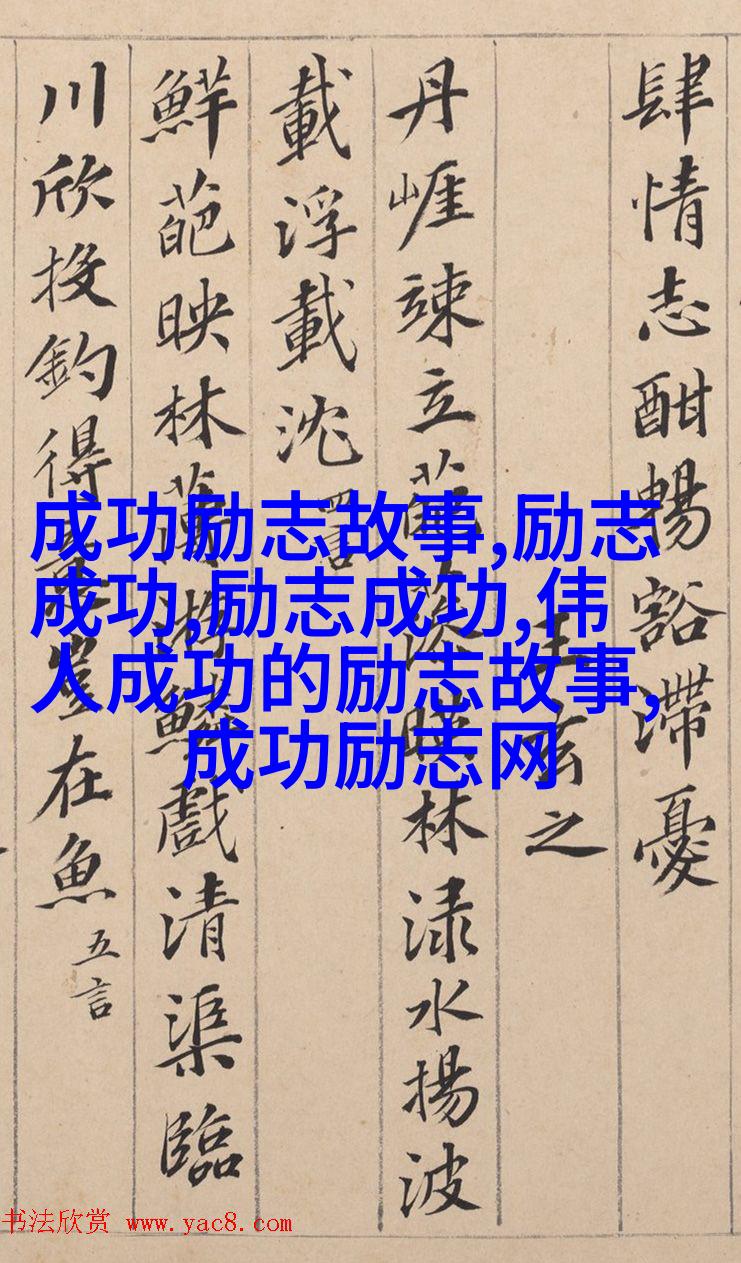 肆情志酣暢豁滯憂
王玄之
丹崕竦立葩藻暎林渌水揚波
載浮載沈 四言
鮮葩映林薄游鱗戲清渠臨
川欣投釣得意豈在魚 五言
成功励志故事,励志
成功,励志成功,伟
人成功的励志故事,
成功励志网
书法欣赏 www.yac8.com